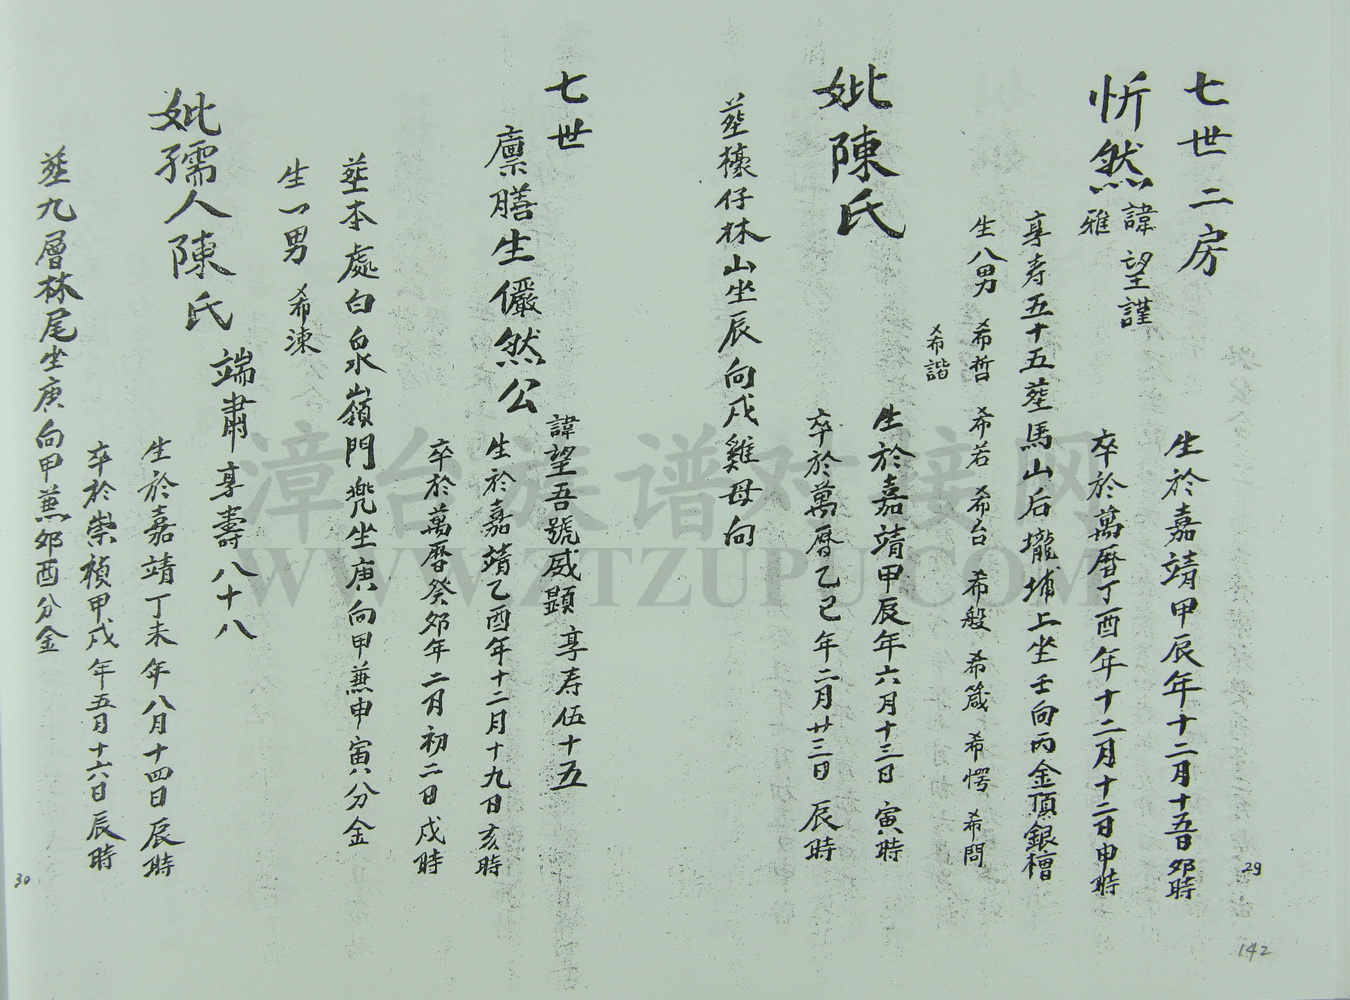 七世二房
忻然 諱望謹
雅
生於嘉靖甲辰年十二月十五日卯時
卒於萬曆丁酉年十二月十二日申時
享寿五十五葬馬山后壠埔上坐壬向丙金頂銀槽
生八男 希哲 希若 希台 希般 希箴 希愕 希問
希諧
妣陳氏
生於嘉靖甲辰年六月十三日寅時
卒於萬曆乙巳年二月廿三日辰時
葬檺仔林山坐辰向戌雞母向
七世
廪膳生儼然公
諱望吾號威顯享寿伍十五
生於嘉靖乙酉年十二月十九日亥時
卒於萬曆癸卯年二月初二日戌時
葬本處白泉嶺門兠坐庚向甲兼申寅分金
生一男 希涑
妣孺人陳氏
端肅享壽八十八
生於嘉靖丁未年八月十四日辰時
卒於崇禎甲戌年五月十六日辰時
葬九層林尾坐庚向甲兼卯酉分金
29
30
142
漳台族谱对接网
WWW.ZTZUPU.COM